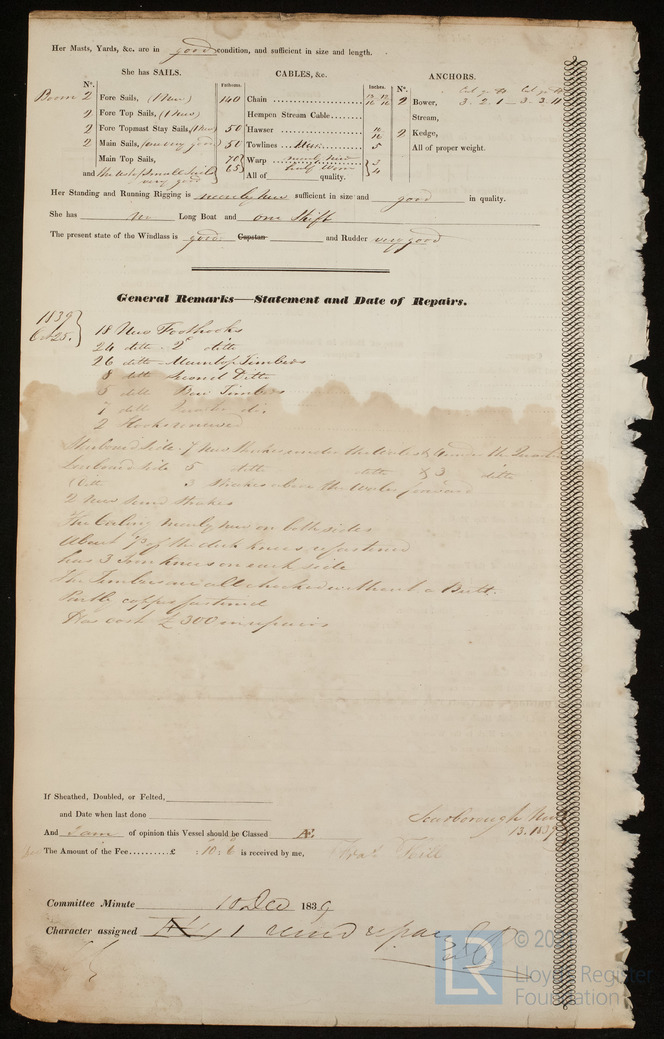 Her Masts, Yards, &c. are in good condition, and sufficient in size and length.
She has SAILS.
CABLES, &c.
ANCHORS.
Nº.
Fathoms.
Inches.
Nº.
Boom 2 Fore Sails, (1 New) 140 Chain
2 Bower, 3. 2. 1 — 3. 3. 11
2 Fore Top Sails, (1 New) Hempen Stream Cable
Stream,
2 Fore Topmast Stay Sails, (1 New) 50 Hawser
2 Kedge,
2 Main Sails, 50 Towlines 5
All of proper weight.
Main Top Sails, 70 Warp nearly new 3
and very good 65 All of half worn quality. 4
Her Standing and Running Rigging is nearly new sufficient in size and good in quality.
She has no Long Boat and one Skiff
The present state of the Windlass is good Capstan and Rudder very good
General Remarks—Statement and Date of Repairs.
1839
Oct 25.
18 New Foothooks
24 ditto 2d ditto
26 ditto Main top Timbers
8 ditto Second Ditto
5 ditto Bow Timbers
7 ditto
2 Hooks renewed
Starboard side 7 New Strakes under the Wales & under the
Larboard side 5 ditto ditto & 3 ditto
Ditto 3 Strakes above the Wales forward
2 New Strakes
The Ceiling nearly new on both sides
About of the deck knees refastened
has 3 Iron knees on each side
The Timbers are all chocked without a Butt.
Partly copper fastened
Has cost £300 in repairs
If Sheathed, Doubled, or Felted,
and Date when last done
Scarborough Nov
13. 1839
And I am of opinion this Vessel should be Classed Æ
The Amount of the Fee..........£ : 10 : 6 is received by me,
Committee Minute 10 Dec 1839
Character assigned 1
LR
© 20
Lloyd's Register
Foundation